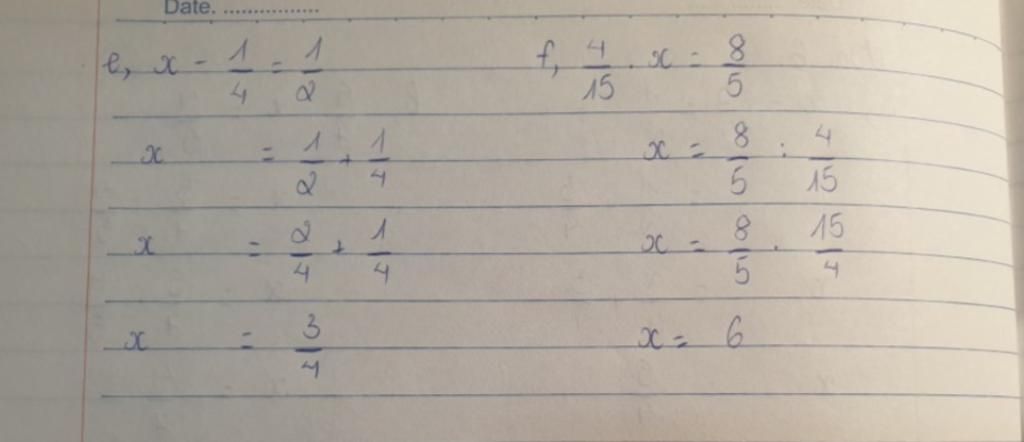 Date. ................
e, x - 1/4 = 1/2
x = 1/2 + 1/4
x = 2/4 + 1/4
x = 3/4
f, 4/15 . x = 8/5
x = 8/5 : 4/15
x = 8/5 . 15/4
x = 6